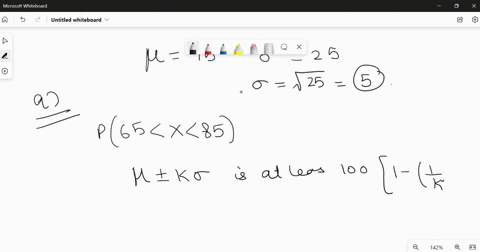 Microsoft Whiteboard
Untitled whiteboard
μ = 25
σ = √25 = 5
a)
P(65 < X < 85)
μ ± Kσ is at leas 100 [1 - (1/K
142%